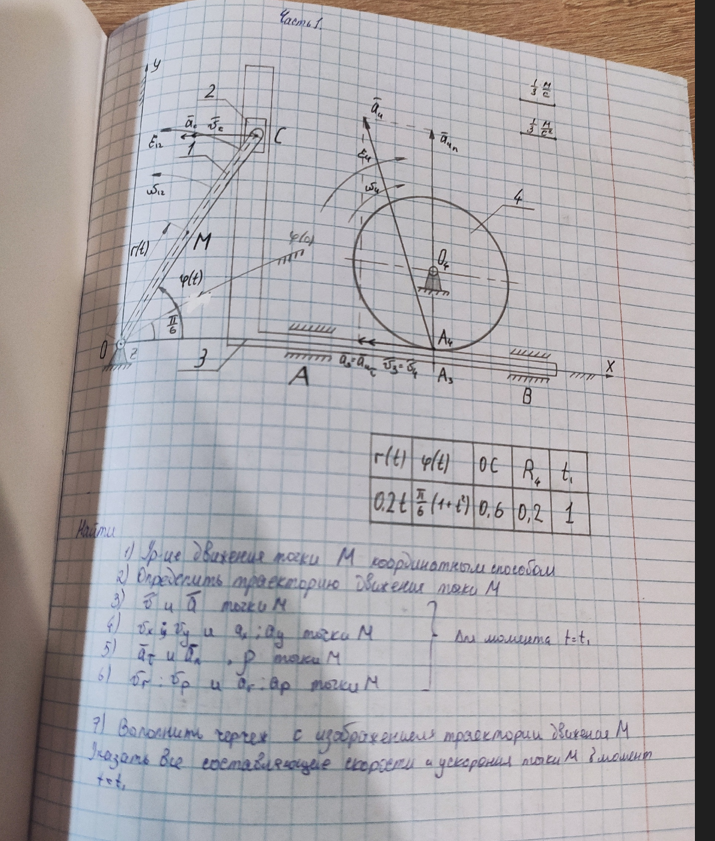 Часть 1.
1/3 м/с
1/3 м/с²
y
2
ā_c v̄_c
C
ε₁₂
1
ω₁₂
r(t)
M
φ(t)
φ(0)
π/6
O
z
3
A
ā₄
ā₄ₙ
ε₄
ω₄
4
O₄
A₄
v̄₃=v̄₄
A₃
B
X
r(t) φ(t) OC R₄ t₁
0.2t π/6 (1+t²) 0,6 0,2 1
Найти
1) Ур-ие движения точки M координатным способом
2) Определить траекторию движения точки M
3) v̄ и ā точки M
4) vₓ; v_y и aₓ; a_y точки M
Для момента t=t₁
5) ā_τ и ā_n, ρ точки M
6) v_r; v_p и a_r; a_p точки M
7) Выполнить чертеж с изображением траектории движения M
Указать все составляющие скорости и ускорения точки M в момент
t=t₁